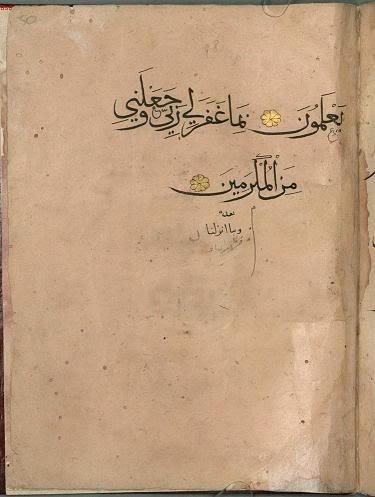 يَعْلَمُونَ بِمَا غَفَرَ لِي رَبِّي وَجَعَلَنِي
مِنَ الْمُكْرَمِينَ
بعده
وما انزلنا